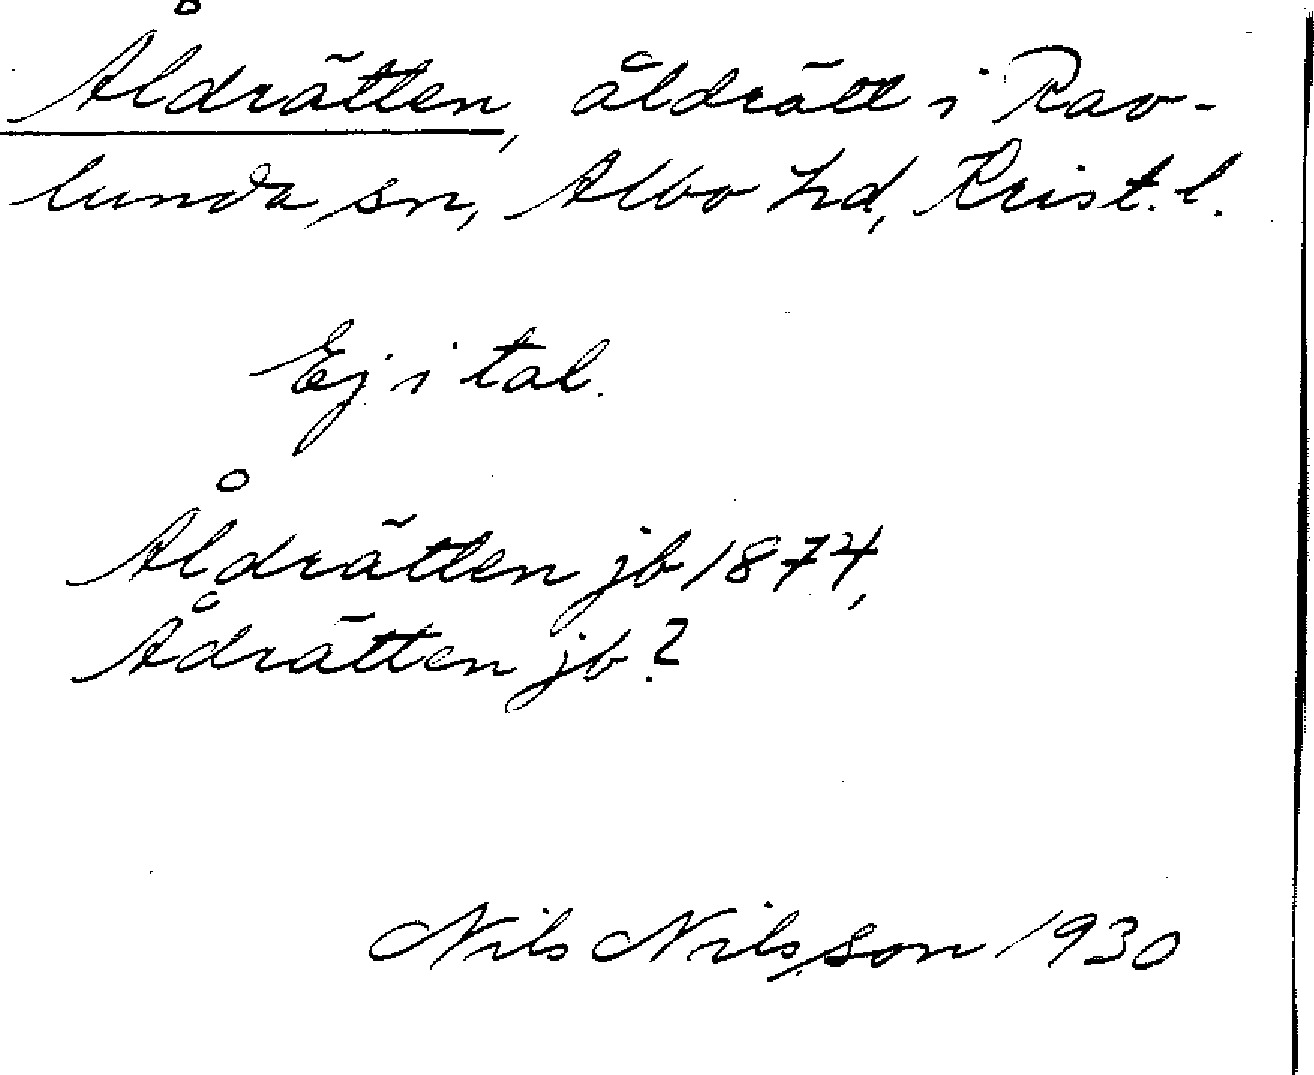 Åldrätten, åldrätt i Rav-
lunda sn, Albo hd, Krist. l.
Ej i tal.
Åldrätten jb 1874,
Ådrätten jb?
Nils Nilsson 1930